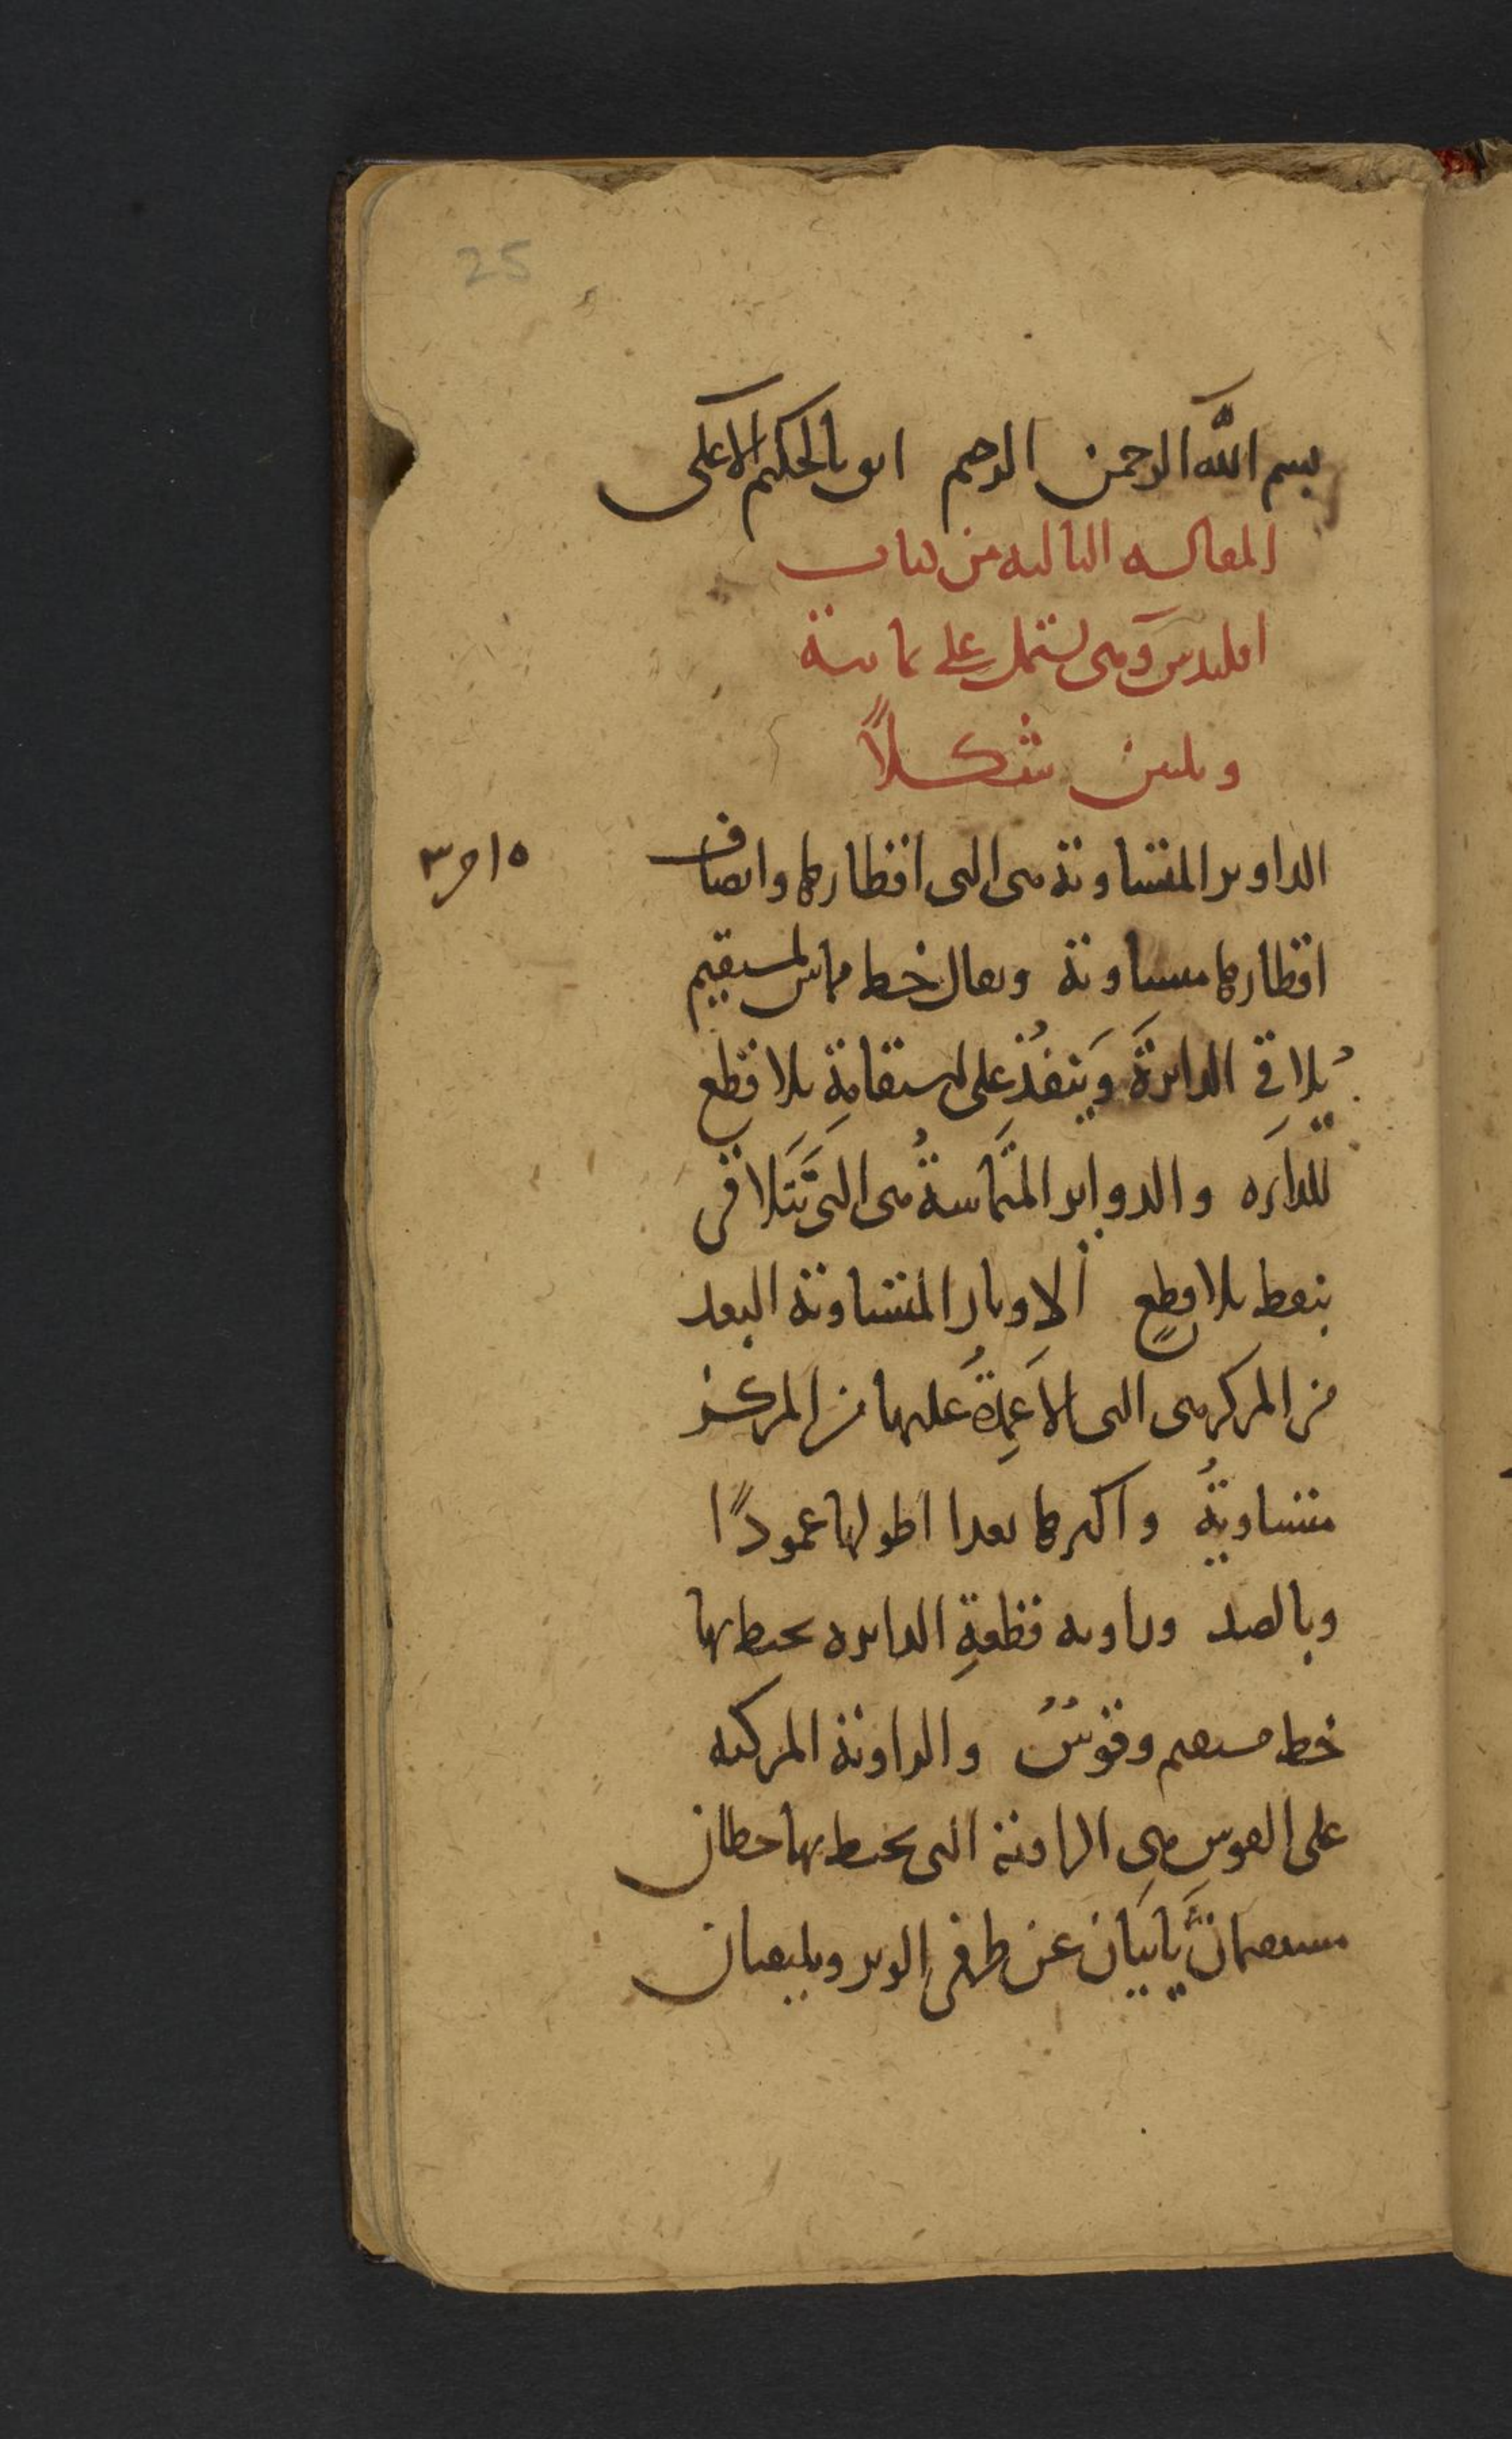 25
بسم الله الرحمن الرحيم اثق بالحكيم الاعلى
المقالة الثالثة من كتاب
اقليدس وهى تشتمل على ثمانية
وثلثين شكلاً
الدواير المتساوية هى التى اقطارها وانصاف
اقطارها متساوية ويقال خط مماس لمستقيم
يُلاقِي الدايرةَ وَينفُذ على استقامةٍ بلا قطع
للدايره والدواير المتماسةُ هى التى تَتَلاقى
بنقط بلا قطعٍ الاوتار المتساوية البعد
من المركز هى التى الاَعمِدةُ عليها من المركز
متساويةُ واكثرها بعدا اطولها عمودًا
وبالضد وزاويه قطعةِ الدايره يحيط بها
خط مستقيم وقوسُ والزاوية المركبه
على القوس هى الزاوية التى يحيط بها خطان
مستقيمان يأتيان عن طرفى الوتر ويلتقيان